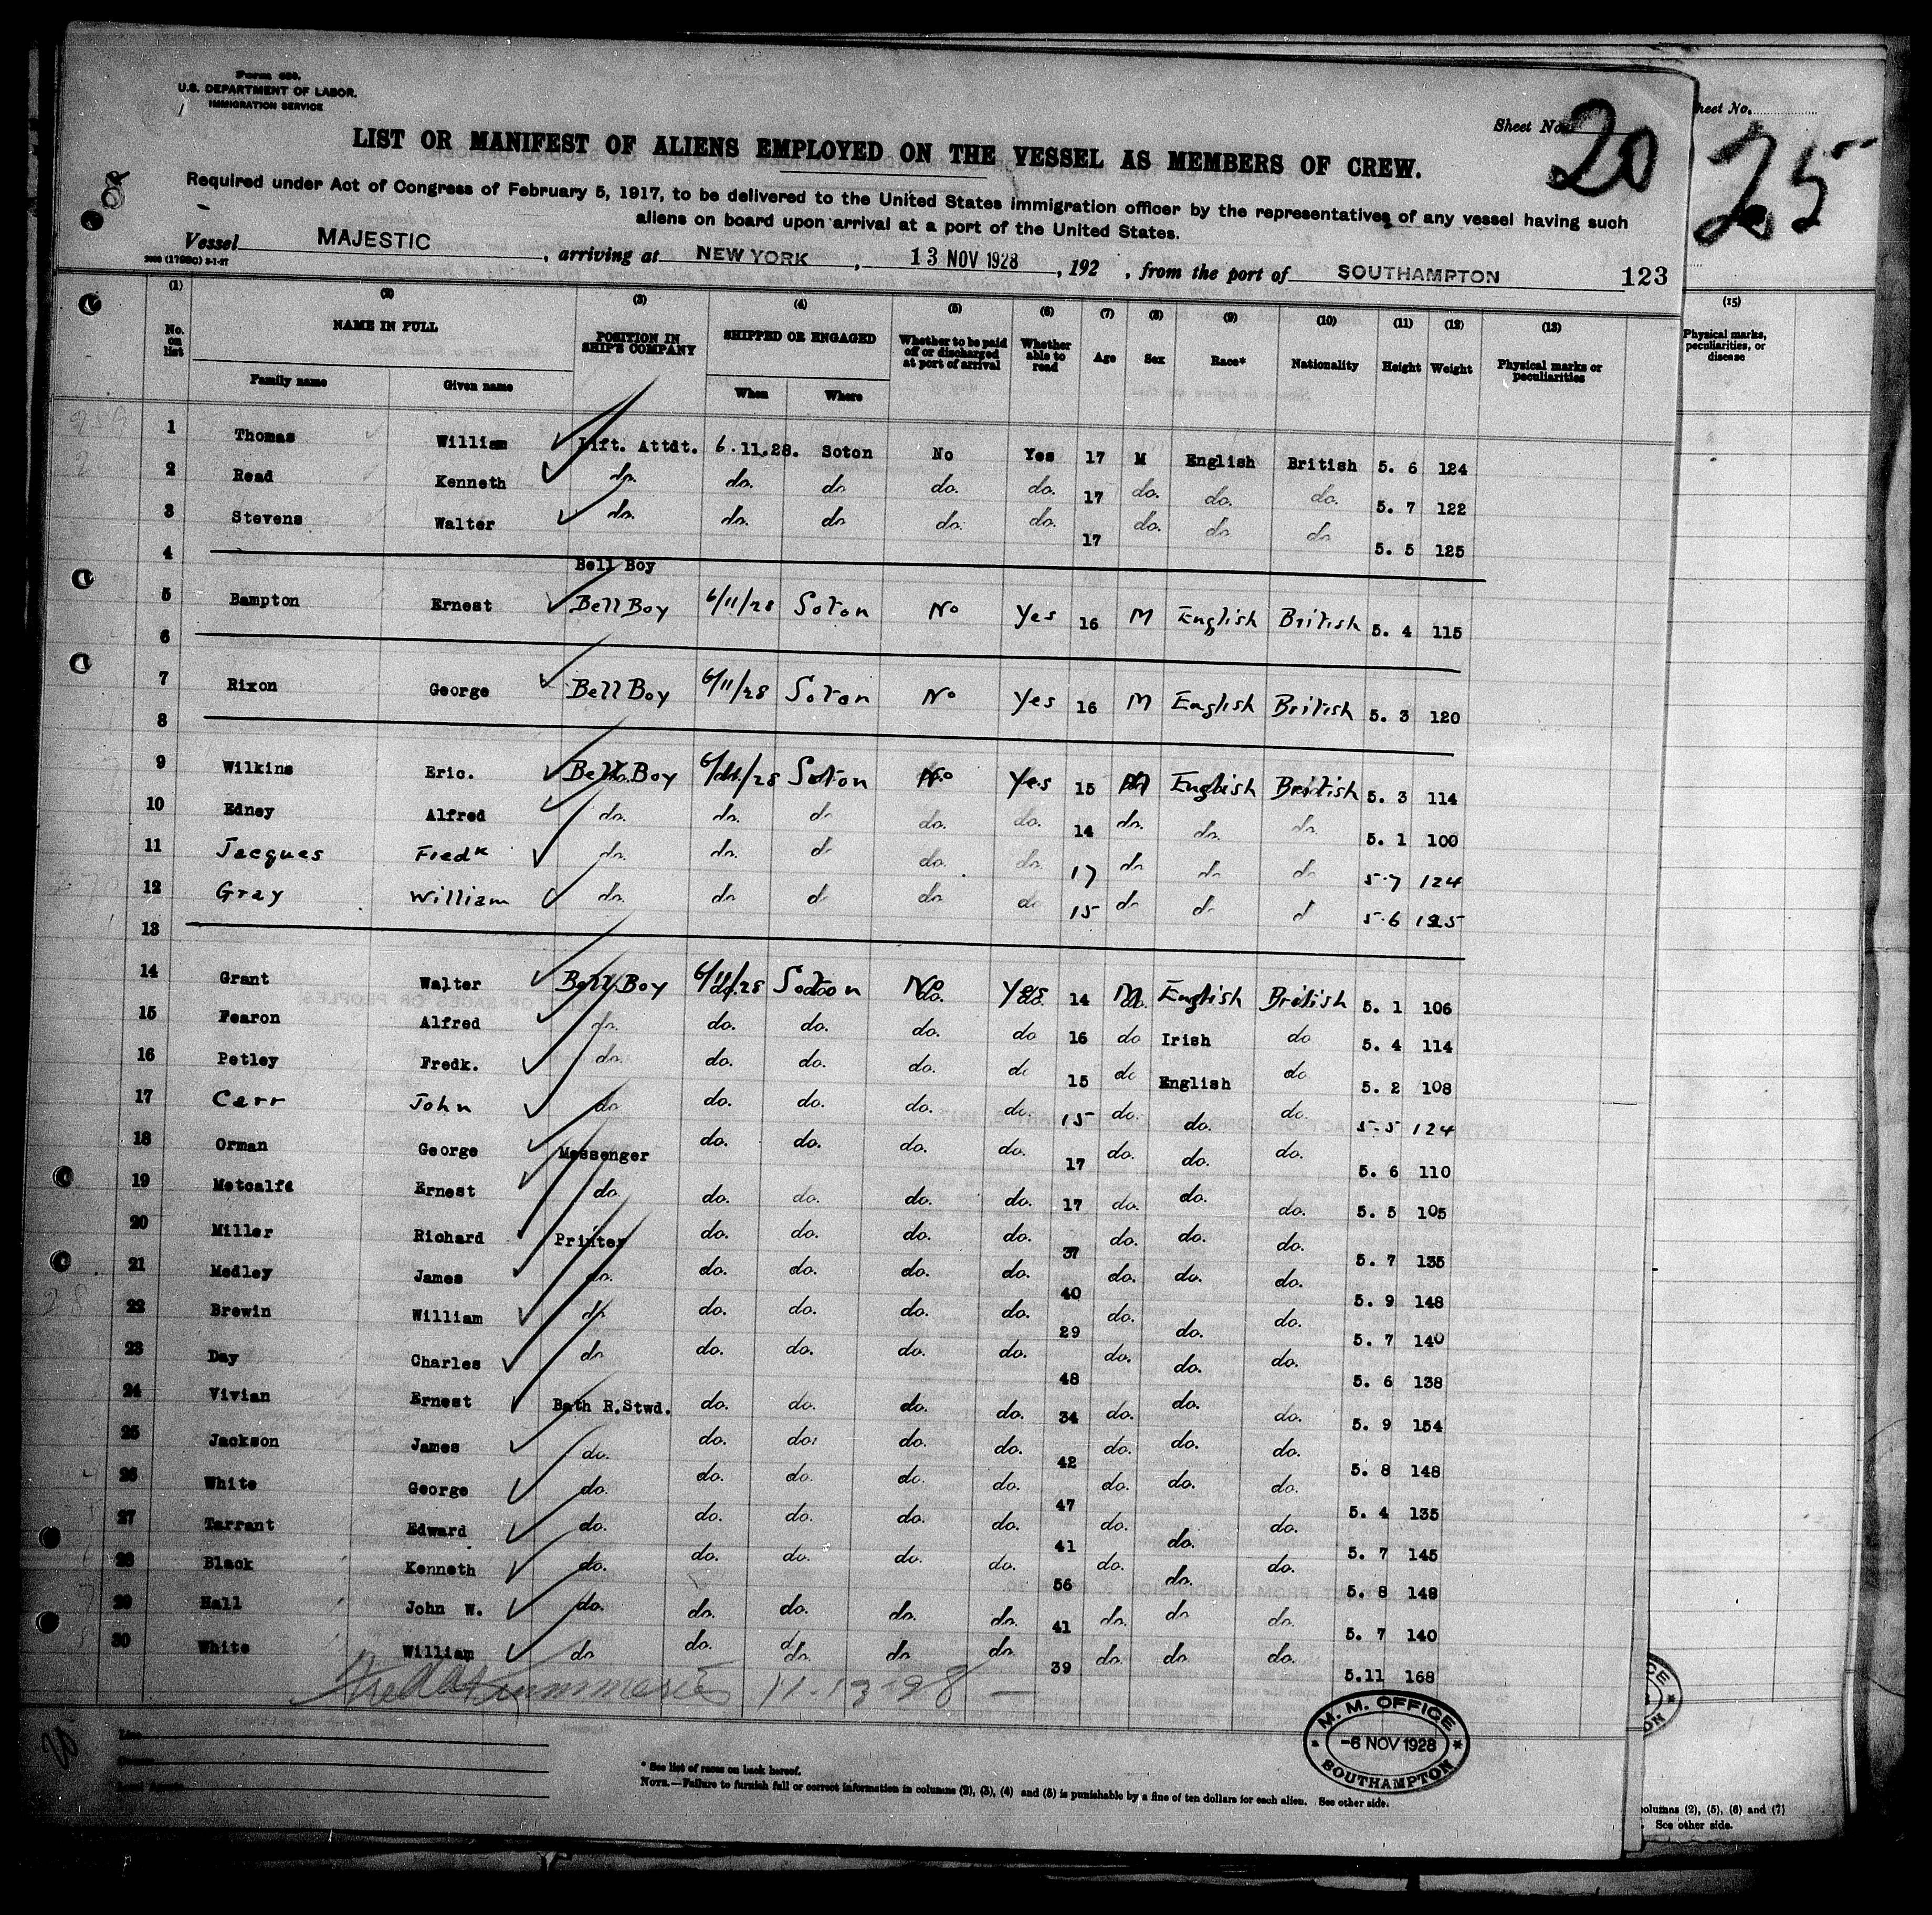 Form 680.
U.S. DEPARTMENT OF LABOR.
IMMIGRATION SERVICE
Sheet No. 20
LIST OR MANIFEST OF ALIENS EMPLOYED ON THE VESSEL AS MEMBERS OF CREW.
Required under Act of Congress of February 5, 1917, to be delivered to the United States immigration officer by the representatives of any vessel having such
aliens on board upon arrival at a port of the United States.
Vessel MAJESTIC, arriving at NEW YORK, 13 NOV 1928, 192 , from the port of SOUTHAMPTON 123
(1) (2) (3) (4) (5) (6) (7) (8) (9) (10) (11) (12) (13)
No. on list NAME IN FULL POSITION IN SHIP'S COMPANY SHIPPED OR ENGAGED Whether to be paid off or discharged at port of arrival Whether able to read Age Sex Race* Nationality Height Weight Physical marks or peculiarities
Family name Given name When Where
1 Thomas William Lift. Attdt. 6.11.28. Soton No Yes 17 M English British 5. 6 124
2 Read Kenneth do. do. do do. do. 17 do. do. do. 5. 7 122
3 Stevens Walter do. do. do do. do. 17 do. do do 5. 5 125
4
Bell Boy
5 Bampton Ernest Bell Boy 6/11/28 Soton No Yes 16 M English British 5. 4 115
6
7 Rixon George Bell Boy 6/11/28 Soton No Yes 16 M English British 5. 3 120
8
9 Wilkins Eric. Bell Boy 6/11/28 Soton No Yes 15 M English British 5. 3 114
10 Edney Alfred do. do. do do. do. 14 do. do. do. 5. 1 100
11 Jacques Fredk do. do. d do. do. 17 do do do 5.7 124
12 Gray William do. do d do do 15 do d d 5.6 125
13
14 Grant Walter Bell Boy 6/11/28 Soton No Yes 14 M English British 5. 1 106
15 Fearon Alfred do. do. do. do. do 16 do Irish do 5. 4 114
16 Petley Fredk. do. do. do. do. do 15 do English do 5. 2 108
17 Carr John do do. do. do. do. 15 do. do. do. 5.5 124
18 Orman George Messenger do. do. do. do. 17 do. do. do. 5. 6 110
19 Metcalfe Ernest do. do. do. do. do. 17 do. do. do. 5. 5 105
20 Miller Richard Printer do. do. do. do. 37 do. do. do. 5. 7 135
21 Medley James do. do. do. do. do. 40 do. do. do. 5. 9 148
22 Brewin William do do. do. do. do. 29 do. do. do. 5. 7 140
23 Day Charles do do. do. do. do. 48 do. do. do. 5. 6 138
24 Vivian Ernest Bath R.Stwd. do. do. do. do. 34 do. do. do. 5. 9 154
25 Jackson James do. do. do. do. do. 42 do. do. do. 5. 8 148
26 White George do. do. do. do. do. 47 do. do. do. 5. 4 135
27 Tarrant Edward do. do. do. do. do. 41 do. do. do. 5. 7 145
28 Black Kenneth do. do. do. do. do. 56 do. do. do. 5. 8 148
29 Hall John W. do. do. do. do. do. 41 do. do do. 5. 7 140
30 White William do do. do. do do. 39 do. do. do. 5.11 168
11-13-28
Line
Owners
Local Agents
* See list of races on back hereof.
NOTE.—Failure to furnish full or correct information in columns (2), (3), (4) and (5) is punishable by a fine of ten dollars for each alien. See other side.
M. M. OFFICE
-6 NOV 1928
SOUTHAMPTON
heet No.
25
(15)
Physical marks, peculiarities, or disease
columns (2), (5), (6) and (7)
See other side.